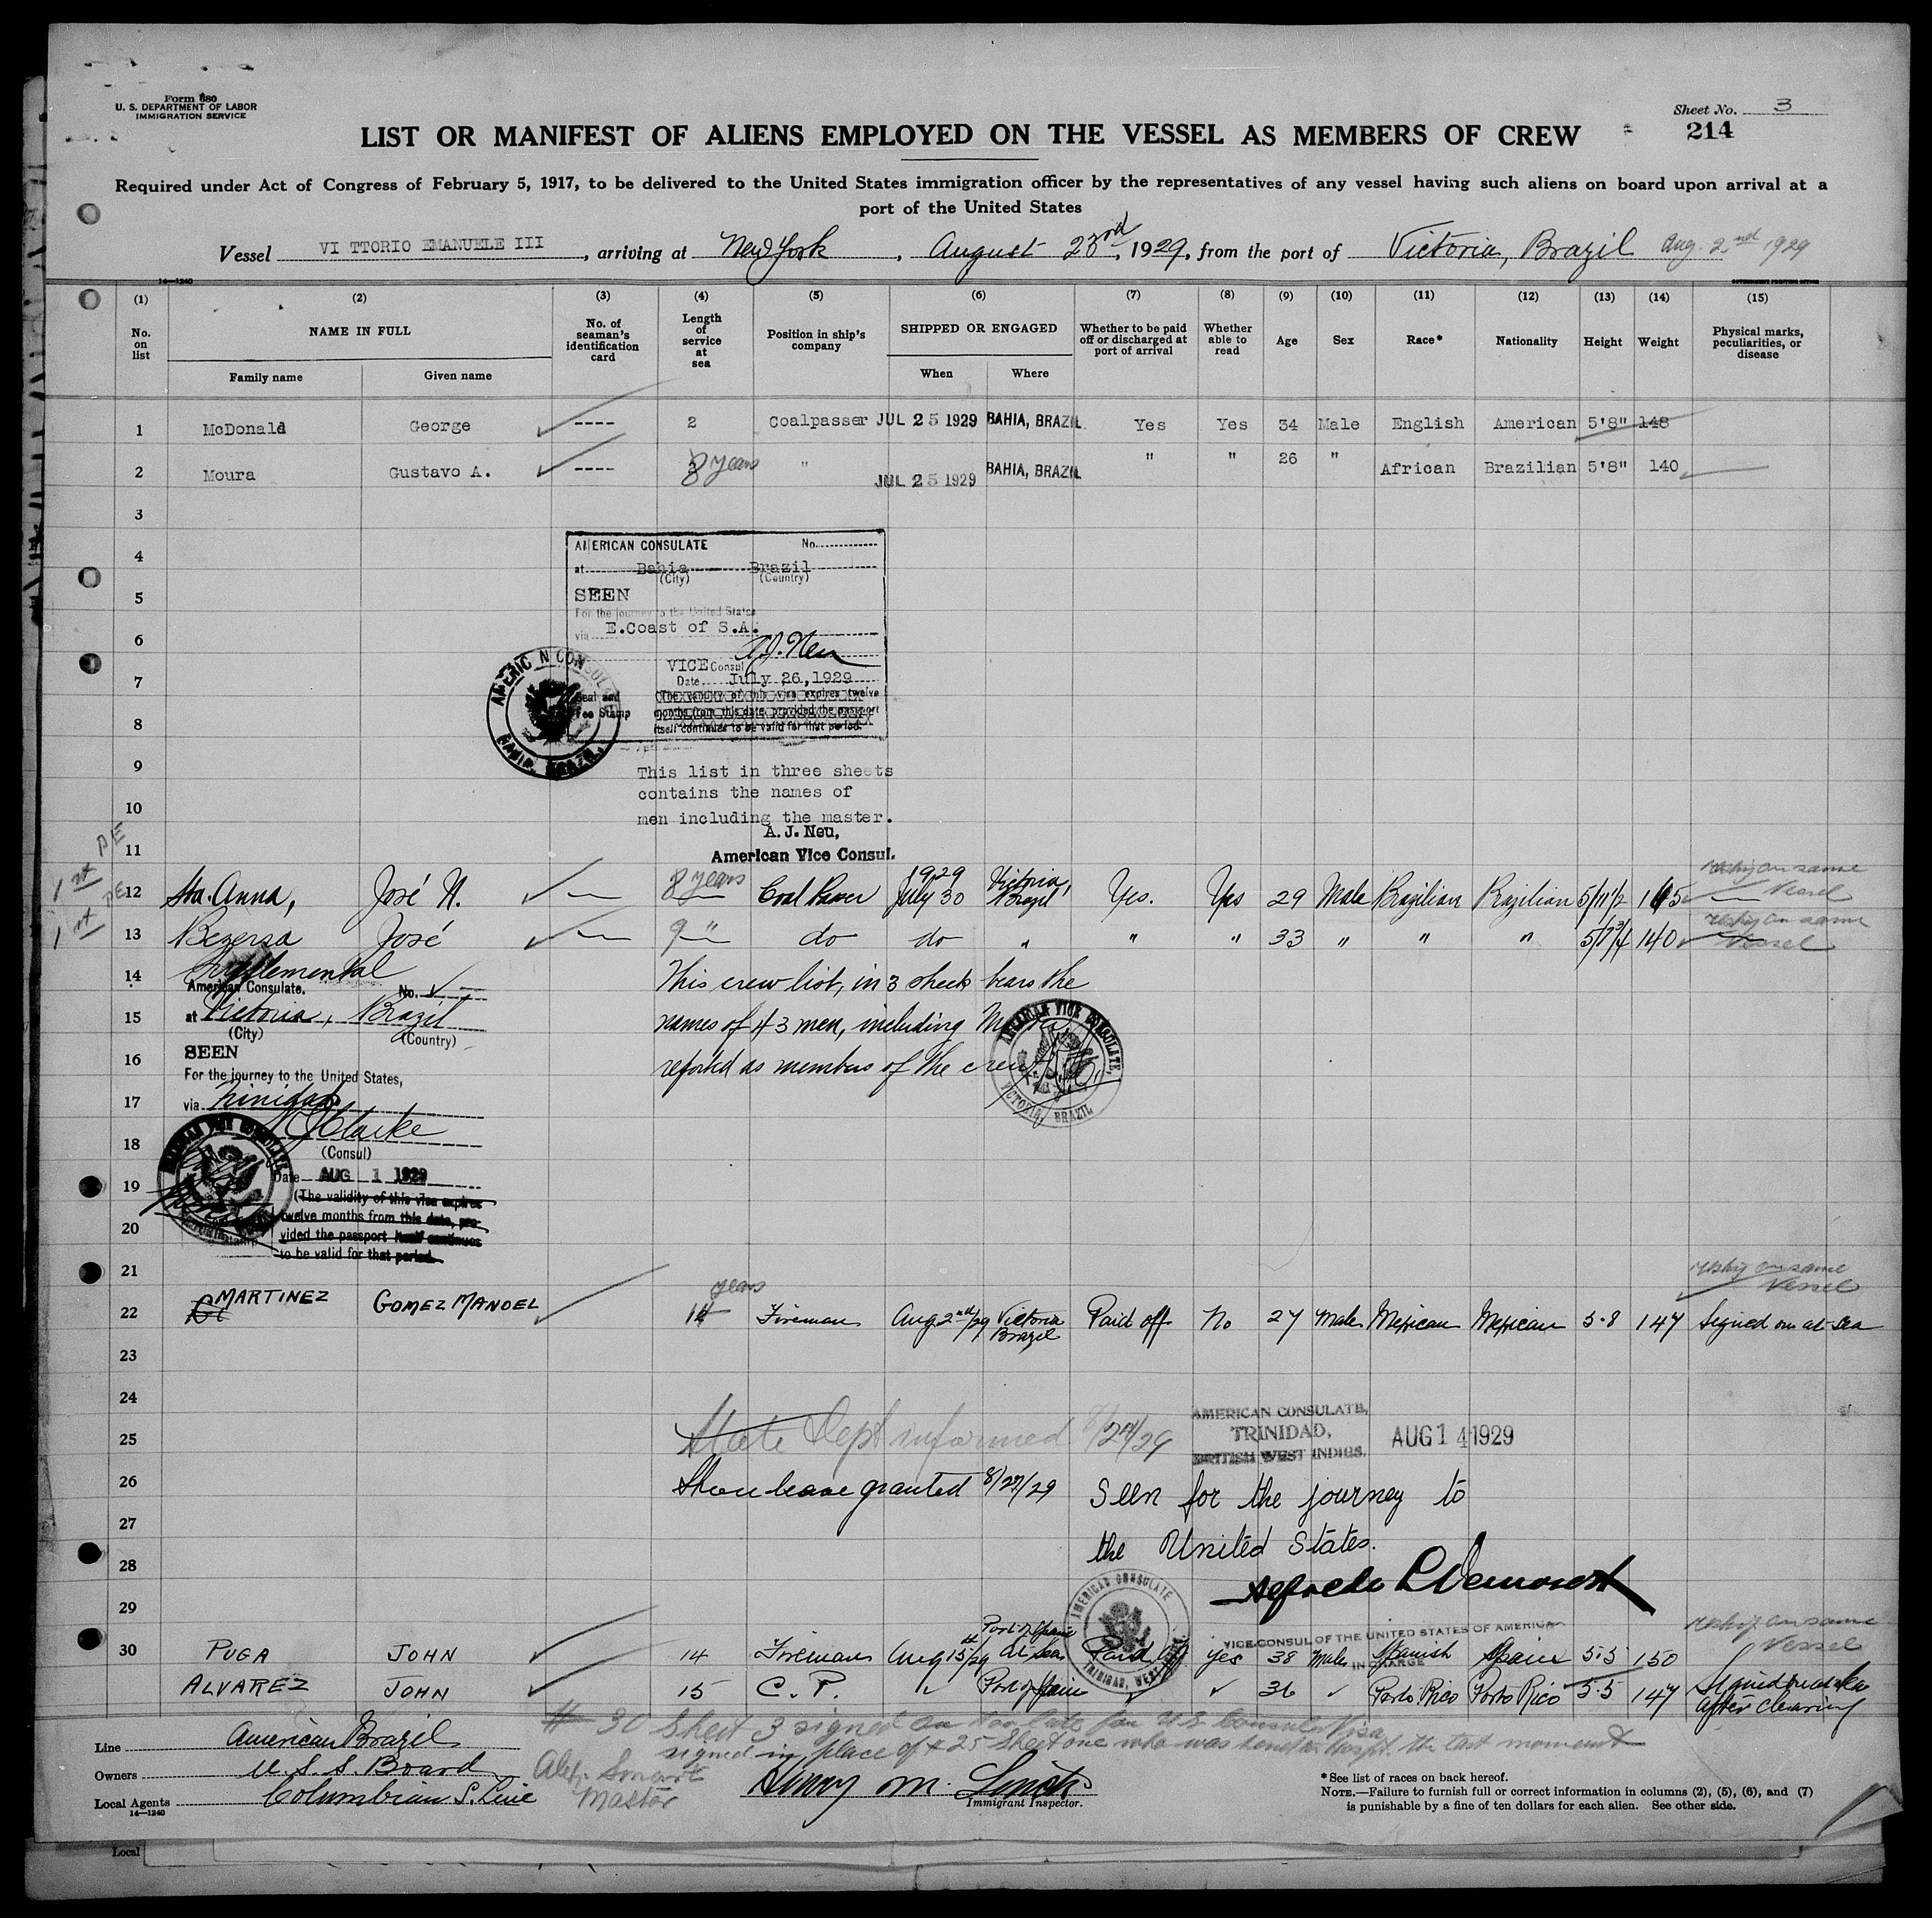 Form 680
U. S. DEPARTMENT OF LABOR
IMMIGRATION SERVICE
Sheet No. 3
214
LIST OR MANIFEST OF ALIENS EMPLOYED ON THE VESSEL AS MEMBERS OF CREW
Required under Act of Congress of February 5, 1917, to be delivered to the United States immigration officer by the representatives of any vessel having such aliens on board upon arrival at a
port of the United States
Vessel VI TTORIO EMANUELE III, arriving at New York, August 23rd, 1929, from the port of Victoria, Brazil Aug. 2nd 1929
14—1240
GOVERNMENT PRINTING OFFICE
(1) (2) (3) (4) (5) (6) (7) (8) (9) (10) (11) (12) (13) (14) (15)
No. on list
NAME IN FULL
Family name
Given name
No. of seaman's identification card
Length of service at sea
Position in ship's company
SHIPPED OR ENGAGED
When
Where
Whether to be paid off or discharged at port of arrival
Whether able to read
Age
Sex
Race*
Nationality
Height
Weight
Physical marks, peculiarities, or disease
1 McDonald George ---- 2 Coalpasser JUL 25 1929 BAHIA, BRAZIL Yes Yes 34 Male English American 5'8" 148
2 Moura Gustavo A. ---- 8 years " JUL 25 1929 BAHIA, BRAZIL " " 26 " African Brazilian 5'8" 140
3
4
AMERICAN CONSULATE No.
at Bahia Brazil
(City) (Country)
5
SEEN
For the journey to the United States
6
via E.Coast of S.A.
A.J. Neu
VICE Consul
7
Date July 26, 1929
AMERICAN CONSULATE BAHIA, BRAZIL
Seal and Fee Stamp
(The validity of this visa expires twelve
months from this date, provided the passport
itself continues to be valid for that period.
8
9
This list in three sheets
contains the names of
10
men including the master.
A. J. Neu,
11
American Vice Consul.
1st PE
12 Sta. Anna, José N. — 8 years Coal Passer 1929 July 30 Victoria, Brazil Yes. Yes 29 Male Brazilian Brazilian 5/11 1/2 165 reship on same Vessel
1st PE
13 Bezerra José — 9 " do do " " " 33 " " " 5/7 3/4 140 reship on same Vessel
14 Supplemental
This crew list, in 3 sheets bears the
American Consulate. No.
15
at Victoria, Brazil
(City) (Country)
names of 43 men, including Master,
16
SEEN
reported as members of the crew.
AMERICAN VICE CONSULATE, VICTORIA, BRAZIL
For the journey to the United States,
17
via Trinidad
18
Clarke
(Consul)
19
Date AUG 1 1929
(The validity of this visa expires
20
twelve months from this date, pro-
vided the passport itself continues
to be valid for that period.
21
22 MARTINEZ GOMEZ MANOEL 14 years Fireman Aug 2nd/29 Victoria Brazil Paid off No 27 Male Mexican Mexican 5-8 147 Signed on at Sea
reship on same Vessel
23
24
25
State Dept informed 8/24/29
AMERICAN CONSULATE,
TRINIDAD,
BRITISH WEST INDIES.
AUG 14 1929
26
Shore leave granted 8/27/29
Seen for the journey to
27
the United States.
28
29
AMERICAN CONSULATE TRINIDAD, WEST
VICE CONSUL OF THE UNITED STATES OF AMERICA
IN CHARGE
30 PUGA JOHN 14 Fireman Aug 15/29 Port of Spain At Sea Paid off Yes 38 Male Spanish Spain 5-5 150 reship on same Vessel
ALVAREZ JOHN 15 C. P. " Port of Spain 36 Porto Rico Porto Rico 5-5 147 Signed on at Sea after clearing
# 30 Sheet 3 signed on too late for U S Consular Visa
signed in place of # 25 Sheet one who was sent to hospt. the last moment
Line American Brazil
Owners U. S. S. Board
Local Agents Columbian S. Line
14—1240
Alex. Smart
Master
Henry M.
Immigrant Inspector.
*See list of races on back hereof.
NOTE.—Failure to furnish full or correct information in columns (2), (5), (6), and (7)
is punishable by a fine of ten dollars for each alien. See other side.
Local